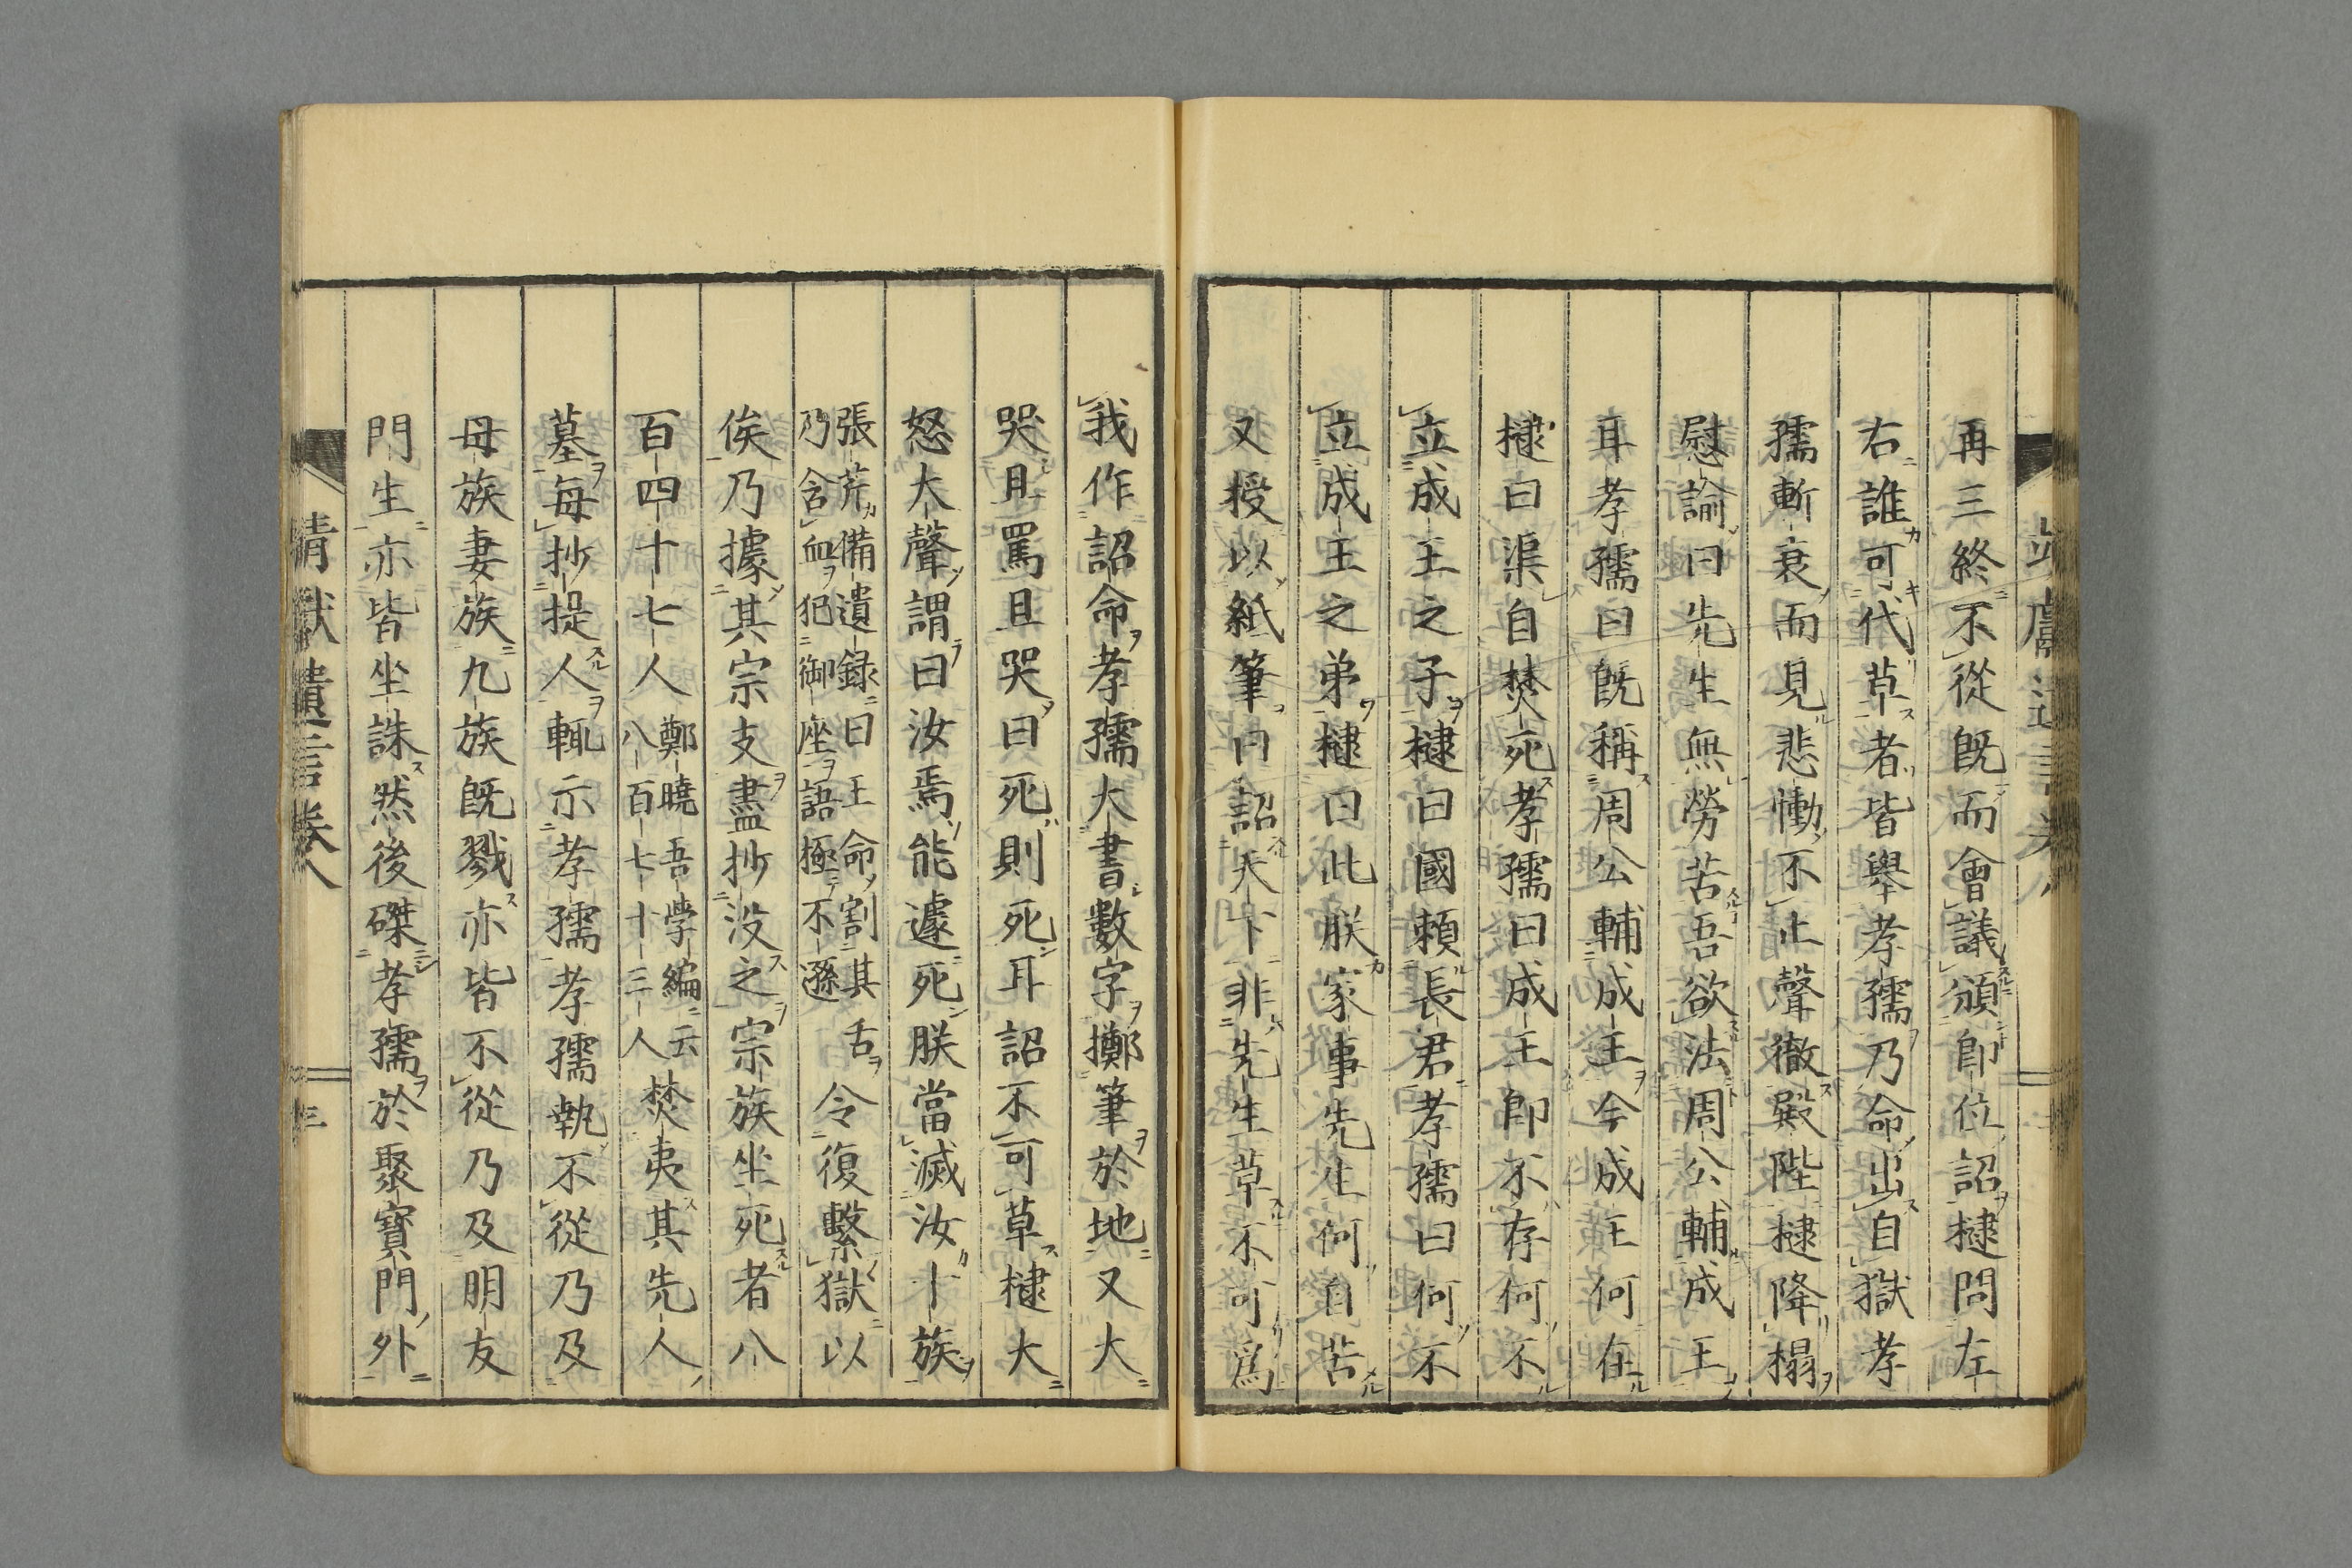 再三終不從既而會議頒即位詔棣問左
右誰可代草者皆舉孝孺乃命出自獄孝
孺斬衰而見悲慟不止聲徹殿陛棣降榻
慰諭曰先生無勞苦吾欲法周公輔成王
耳孝孺曰既稱周公輔成王今成王何在
棣曰渠自焚死孝孺曰成王即不存何不
立成王之子棣曰國賴長君孝孺曰何不
立成王之弟棣曰此朕家事先生何自苦
又授以紙筆曰詔天下非先生草不可爲
我作詔命孝孺大書數字擲筆於地又大
哭且罵且哭曰死則死耳詔不可草棣大
怒大聲謂曰汝焉能遽死朕當滅汝十族
張芹備遺録曰王命割其舌
乃含血犯御座語極不遜
令復繫獄以
俟乃據其宗支盡抄没之宗族坐死者八
百四十七人
鄭曉吾學編云
八百七十三人
焚夷其先人
墓毎抄提人輒示孝孺孝孺執不從乃及
母族妻族九族既戮亦皆不從乃及朋友
門生亦皆坐誅然後磔孝孺於聚寳門外
靖獻遺言卷八